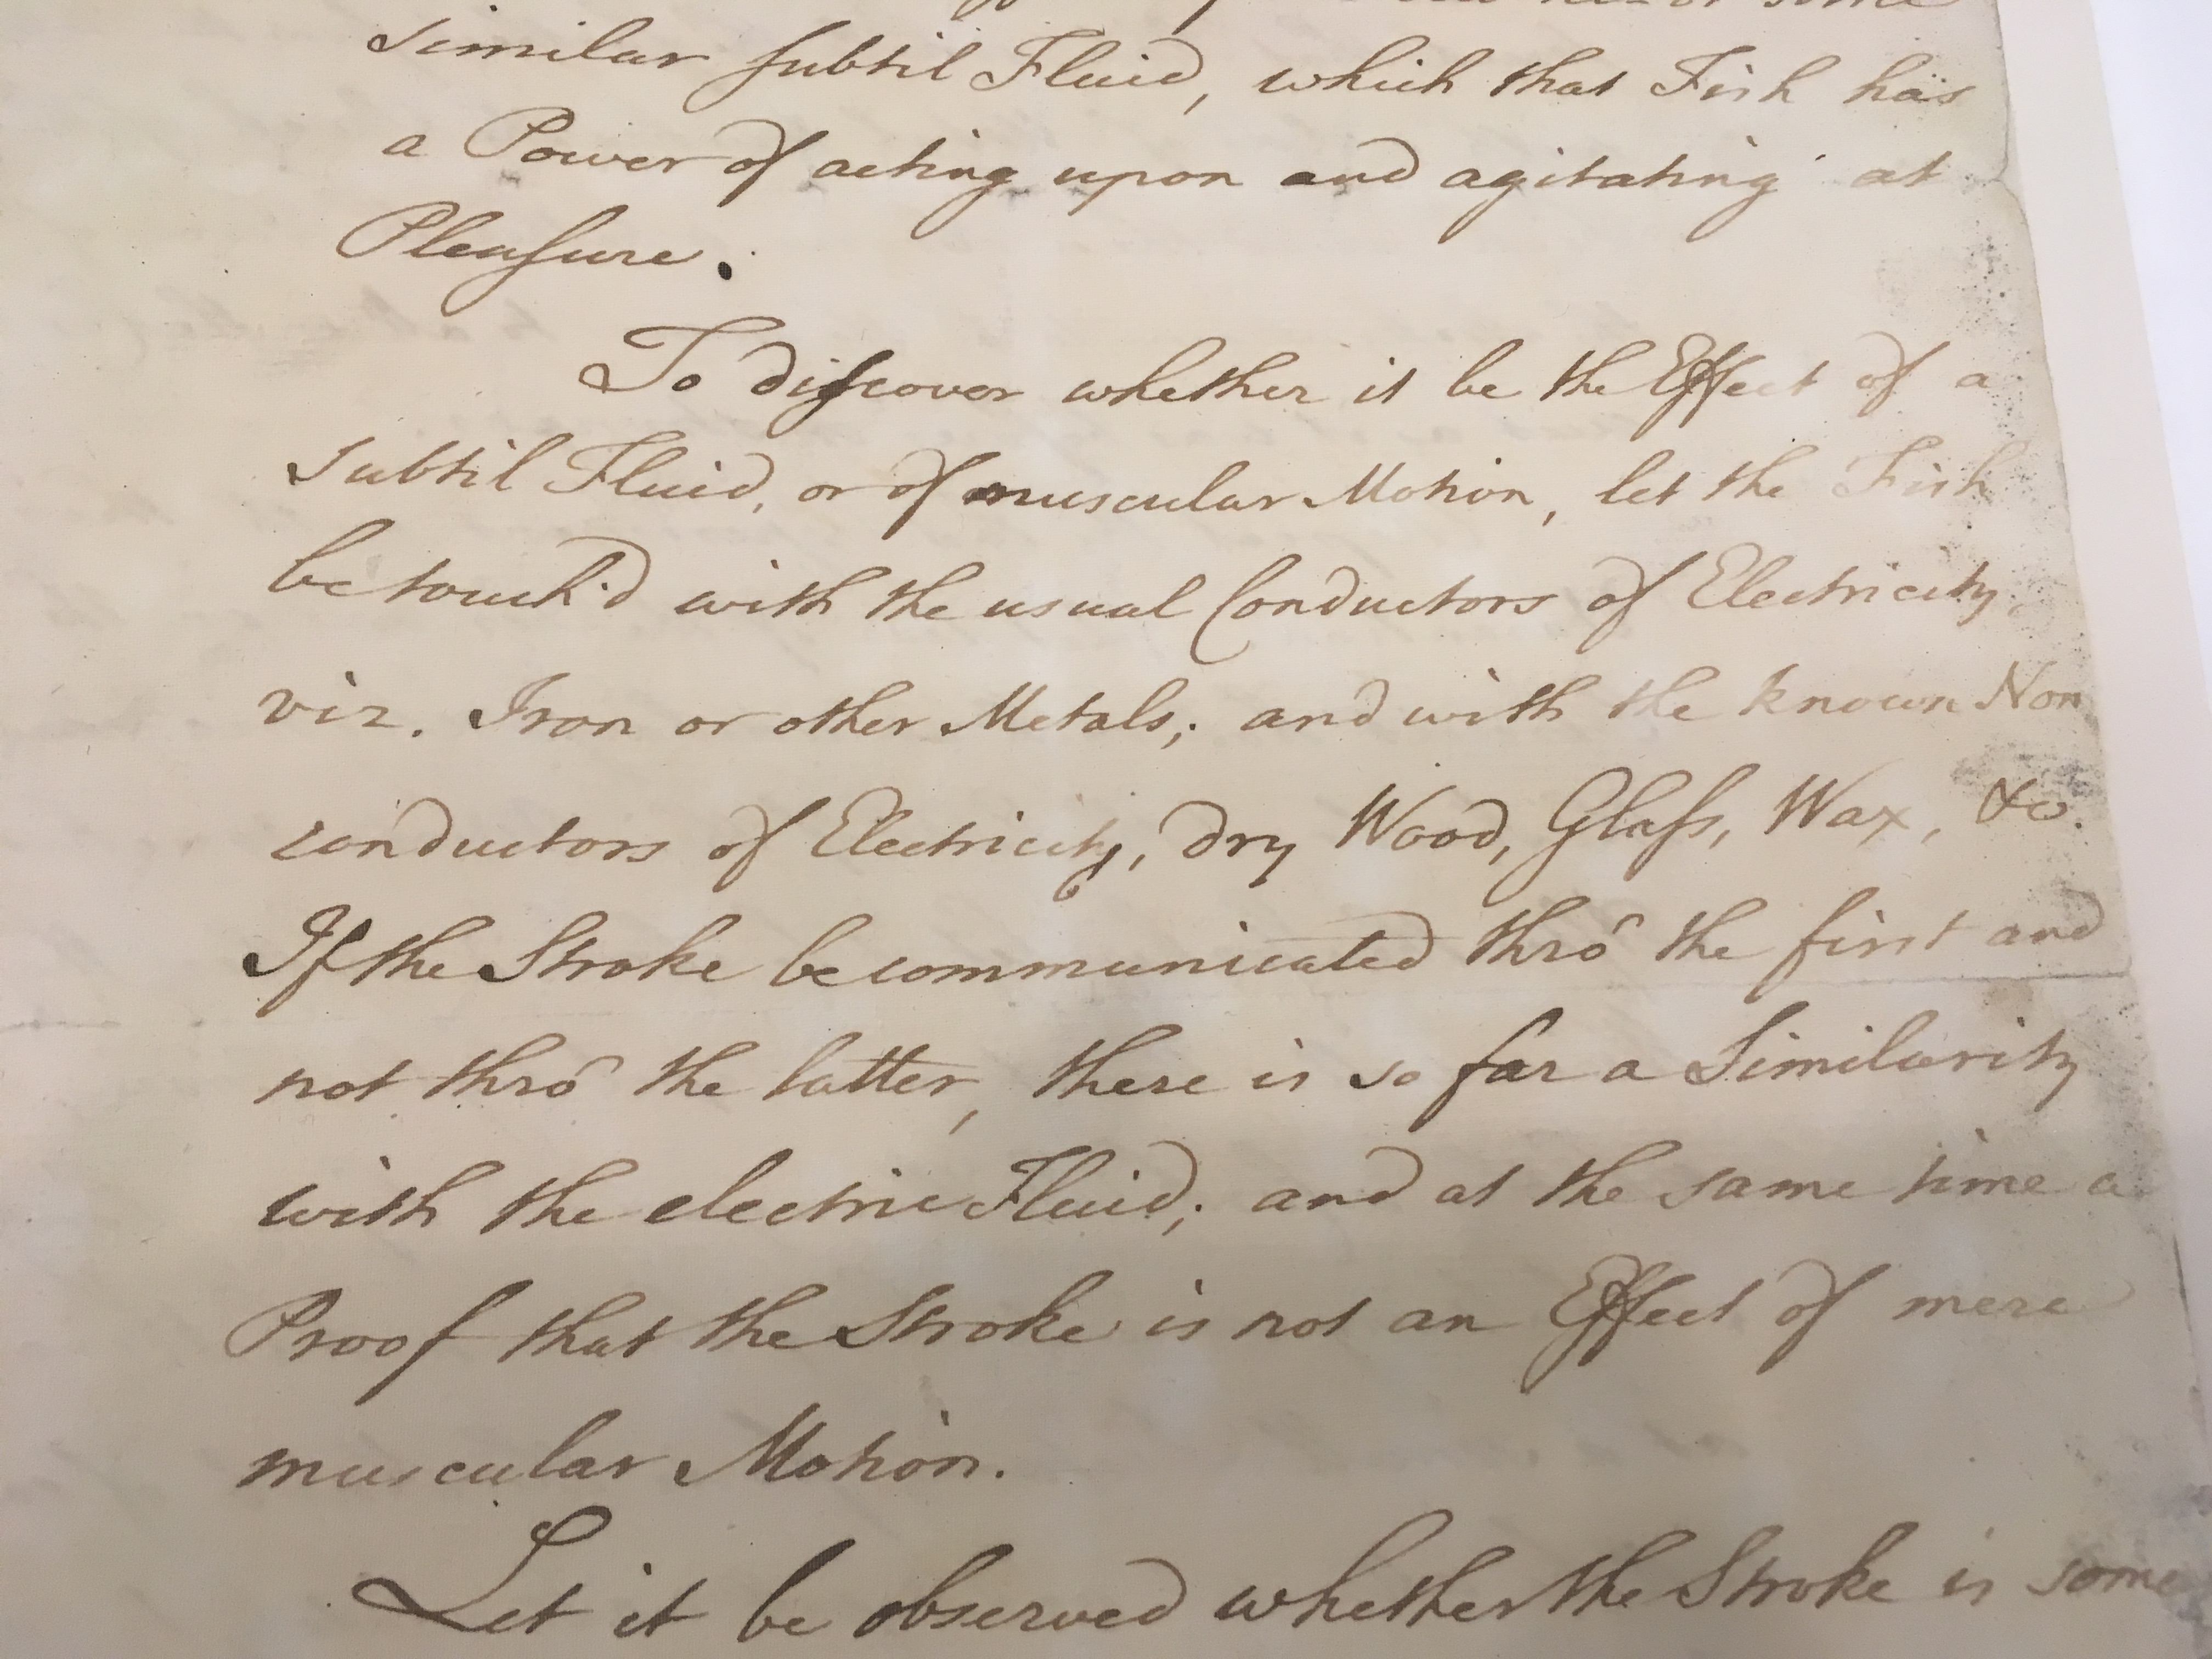 some
similar subtil Fluid, which that Fish has
a Power of acting upon and agitating at
Pleasure.
To discover whether it be the Effect of a
subtil Fluid, or of muscular Motion, let the Fish
be touch'd with the usual Conductors of Electricity,
viz. Iron or other Metals; and with the known Non
conductors of Electricity, dry Wood, Glass, Wax, &c.
If the Stroke be communicated thrô the first and
not thrô the latter, there is so far a Similarity
with the electric Fluid; and at the same time a
Proof that the Stroke is not an Effect of mere
muscular Motion.
Let it be observed whether the Stroke is some